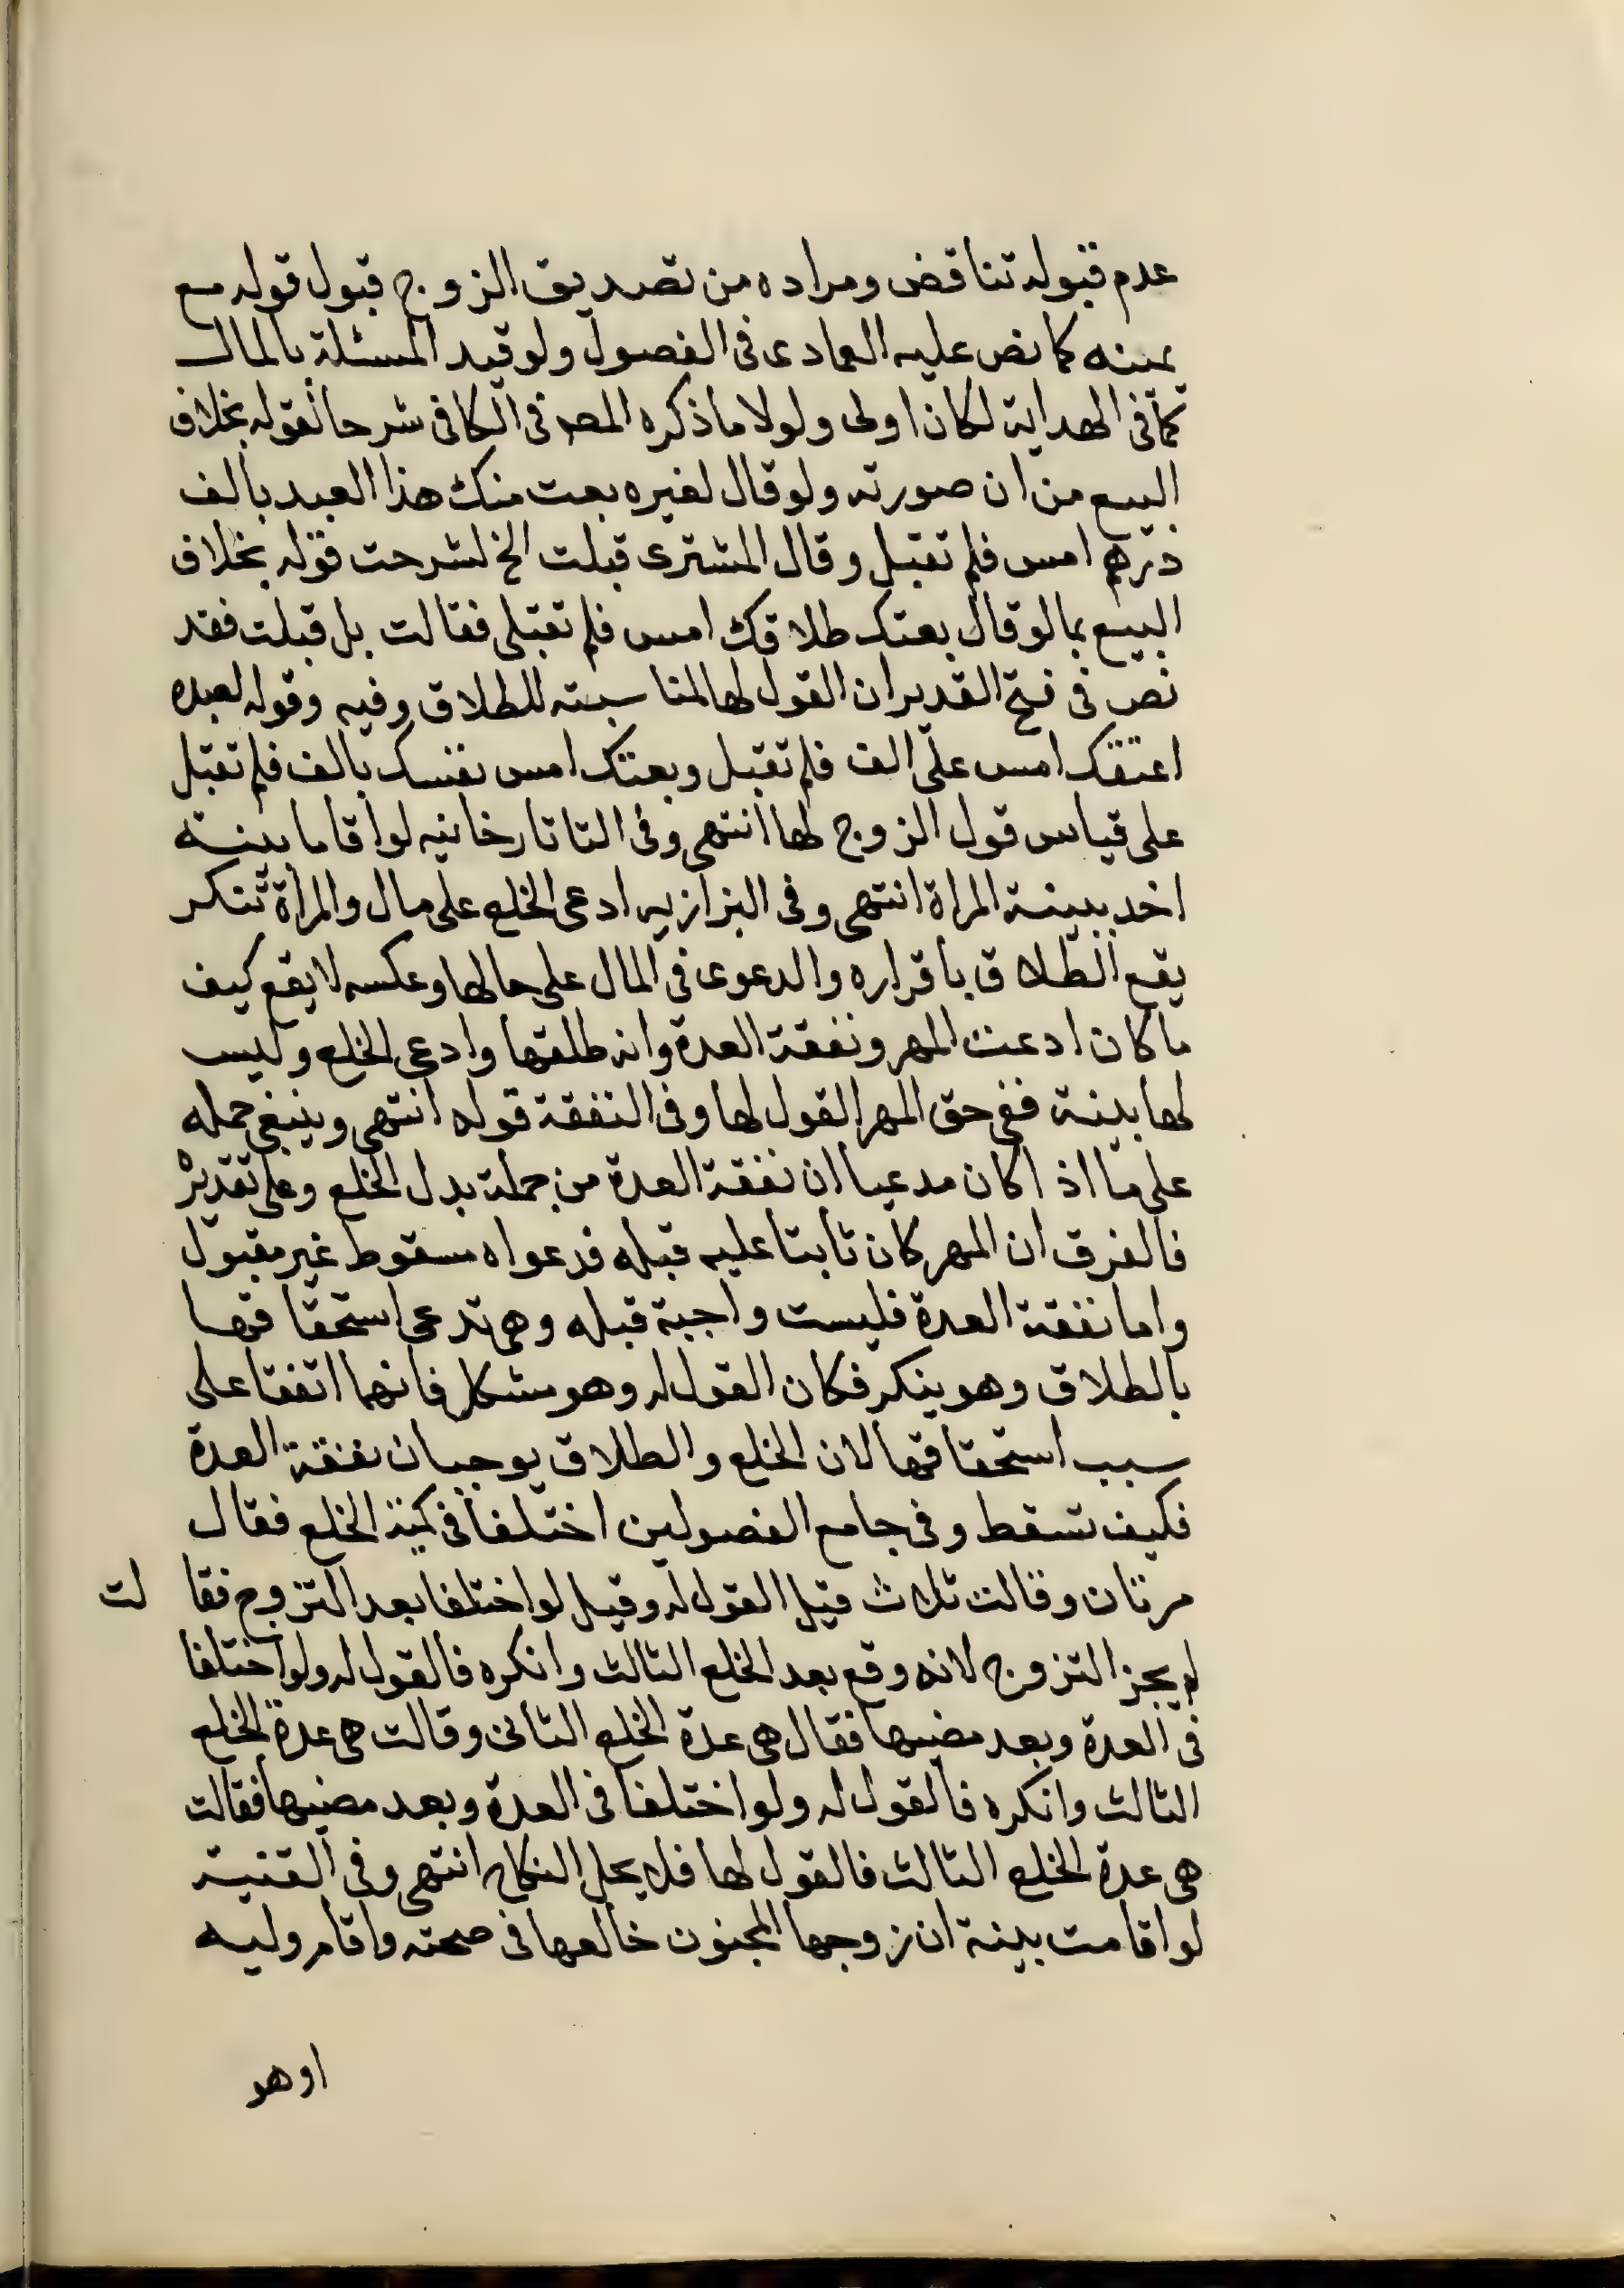 عدم قبوله تناقض ومراده من تصديق الزوج قبول قوله مع
يمينه كما نص عليه العمادى فى الفصول ولو قيد المسئلة بالمال
كما فى الهداية لكان اولى ولولا ما ذكره المصـ فى الكافى شرحا لقوله بخلاف
البيع من ان صورته ولو قال لغيره بعت منك هذا العبد بالف
درهم امس فلم تقبل وقال المشترى قبلت الخ لشرحت قوله بخلاف
البيع بما لو قال بعتك طلاقك امس فلم تقبلى فقالت بل قبلت فقد
نص فى فتح القدير ان القول لها لمناسبته للطلاق وفيه وقوله لعبده
اعتقتك امس على الف فلم تقبل وبعتك امس نفسك بالف فلم تقبل
على قياس قول الزوج لها انتهى وفى التاتارخانيه لو اقاما بينة
اخد ببينة المراة انتهى وفى البزازيه ادعى الخلع على مال والمرأة تنكر
يقع الطلاق باقراره والدعوى فى المال على حالها وعكسه لا يقع كيف
ما كان ادعت المهر ونفقة العدة وانه طلقها وادعى الخلع وليس
لها بينة ففى حق المهر القول لها وفى النفقة قوله انتهى وينبغى حمله
على ما اذا كان مدعيا ان نفقة العدة من جملة بدل الخلع وعلى تقديره
فالفرق ان المهر كان ثابتا عليه قبله فدعواه سقوطه غير مقبول
واما نفقة العدة فليست واجبة قبله وهى تدعى استحقاقها
بالطلاق وهو ينكر فكان القول له وهو مشكل فانهما اتفقا على
سبب استحقاقها لان الخلع والطلاق يوجبان نفقة العدة
فكيف تسقط وفى جامع الفصولين اختلفا فى كمية الخلع فقال
مرتان وقالت ثلاث قيل القول له وقيل لو اختلفا بعد التزوج فقالت
لم يجز التزوج لانه وقع بعد الخلع الثالث وانكره فالقول له ولو اختلفا
فى العدة وبعد مضيها فقال هى عدة الخلع الثانى وقالت هى عدة الخلع
الثالث وانكره فالقول له ولو اختلفا فى العدة وبعد مضيها فقالت
هى عدة الخلع الثالث فالقول لها فلا يحل النكاح انتهى وفى القنية
لو اقامت بينة ان زوجها المجنون خالعها فى صحته واقام وليه
او هو